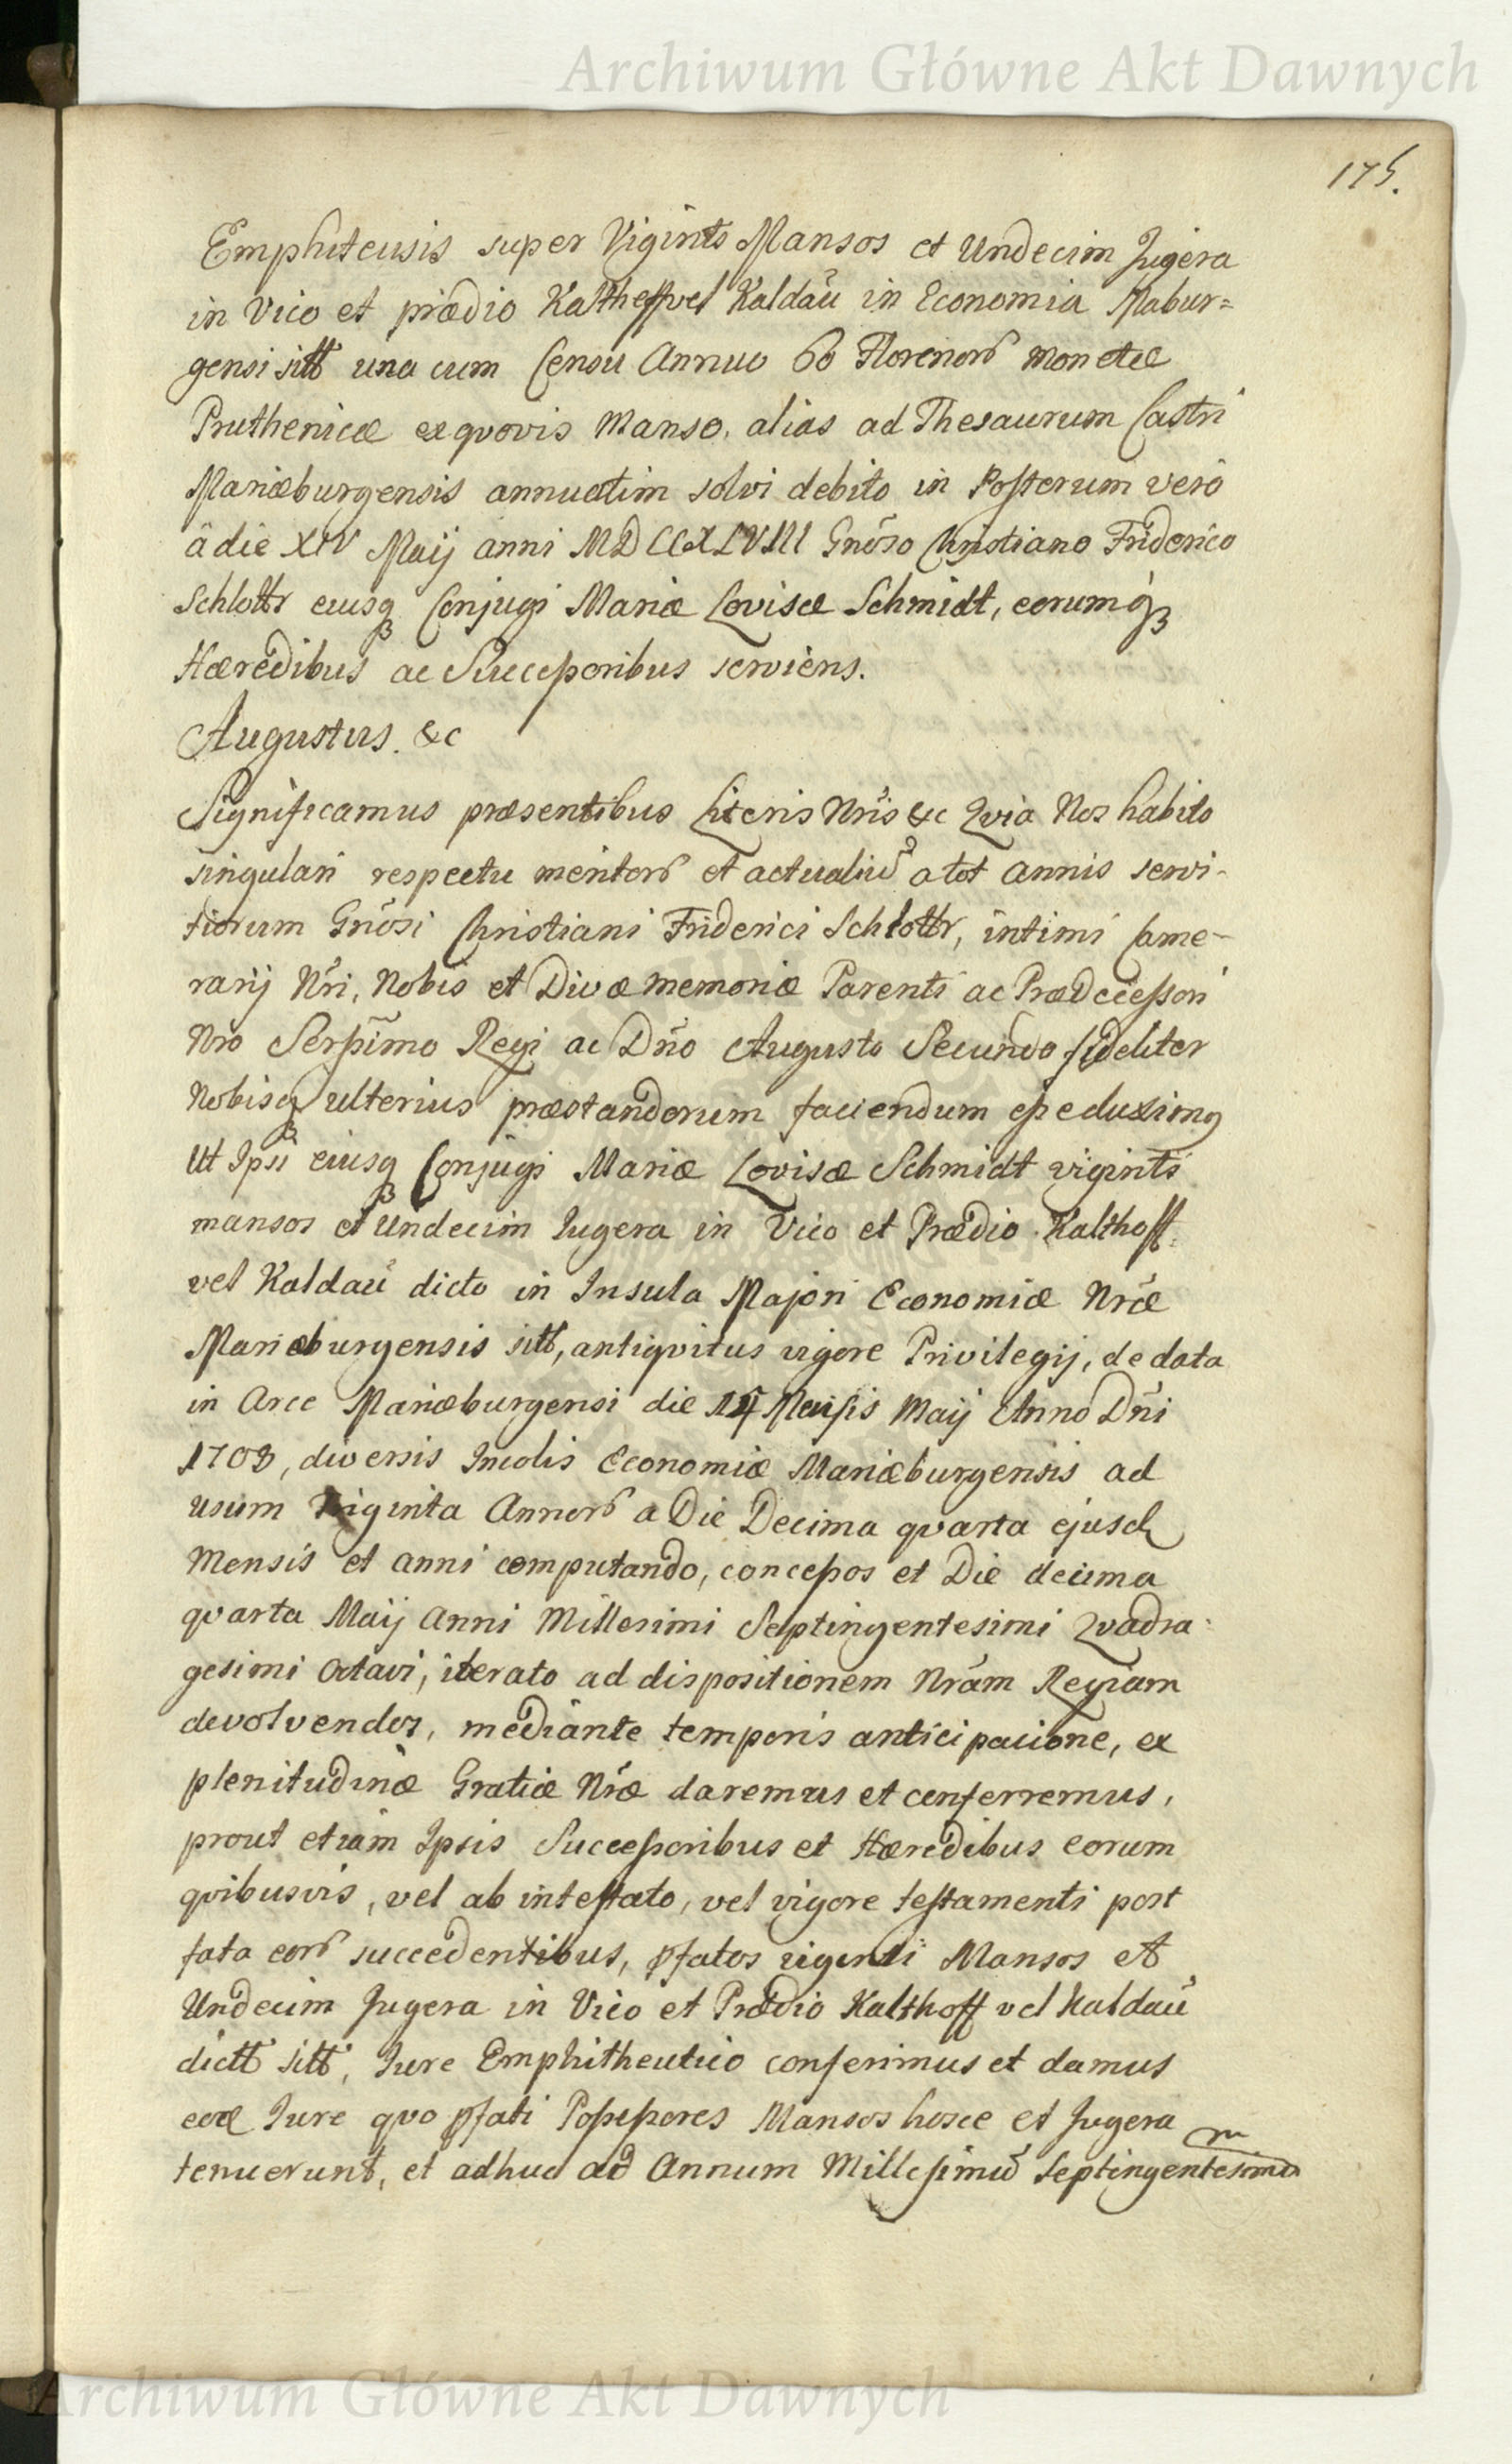 Archiwum Główne Akt Dawnych
175.
Emphiteusis super Viginti Mansos et Undecim Jugera
in Vico et prædio Kalthoff vel Kaldaŭ in Economia Mabur=
gensi sitt una cum Censu Annuo 60 Florenor monetæ
Pruthenicæ ex qvovis Manso, alias ad Thesaurum Castri
Mariæburgensis annuatim solvi debito in Posterum vero
â die XIV Maij anni MDCCXLVIII Gnõso Christiano Friderico
Schlottr eiusq3 Conjugi Mariæ Lovisæ Schmidt, eorumq3
Hæredibus ac Successoribus serviens.
Augustus. &c
Significamus præsentibus Literis Nrĩs &c Qvia Nos habito
singulari respectu meritor et actualiũ a tot annis servi-
tiorum Gnõsi Christiani Friderici Schlottr, intimi Came-
rarij Nrĩ, Nobis et Divæ memoriæ Parenti ac Prædecessori
Nro Serssĩmo Regi ac Dno Augusto Secundo fideliter
Nobisq3 ulterius præstandorum faciendum esse duximq
Ut Ipsi eiusq3 Conjugi Mariæ Lovisæ Schmidt viginti
mansos et Undecim Iugera in Vico et Prædio Kalthoff
vel Kaldaŭ dicto in Insula Majori Economiæ Nræ
Mariæburgensis sitt, antiqvitus vigore Privilegij, de data
in Arce Mariæburgensi die 14 Mensis Maij Anno Dnĩ
1708, diversis Incolis Economiæ Mariæburgensis ad
usum Annor a Die Decima qvarta ejusd
Mensis et anni computando, concessos et Die decima
qvarta Maij Anni Millesimi Septingentesimi Qvadra=
gesimi Octavi, iterato ad dispositionem Nram Regiam
devolvendos, mediante temporis anticipacione, ex
plenitudinæ Gratiæ Nræ daremus et conferremus,
prout etiam Ipsis Successoribus et Hæredibus eorum
qvibusvis, vel ab intestato, vel vigore testamenti post
fata eor succedentibus, pfatos viginti Mansos et
Undecim Jugera in Vico et Prædio Kalthoff vel Kaldaŭ
dictt sitt, Iure Emphitheutico conferimus et damus
eod Iure qvo pfati Possessores Mansos hosce et Jugera
tenuerunt, et adhuc ad Annum Millesimũ Septingentesimu
m
Archiwum Główne Akt Dawnych